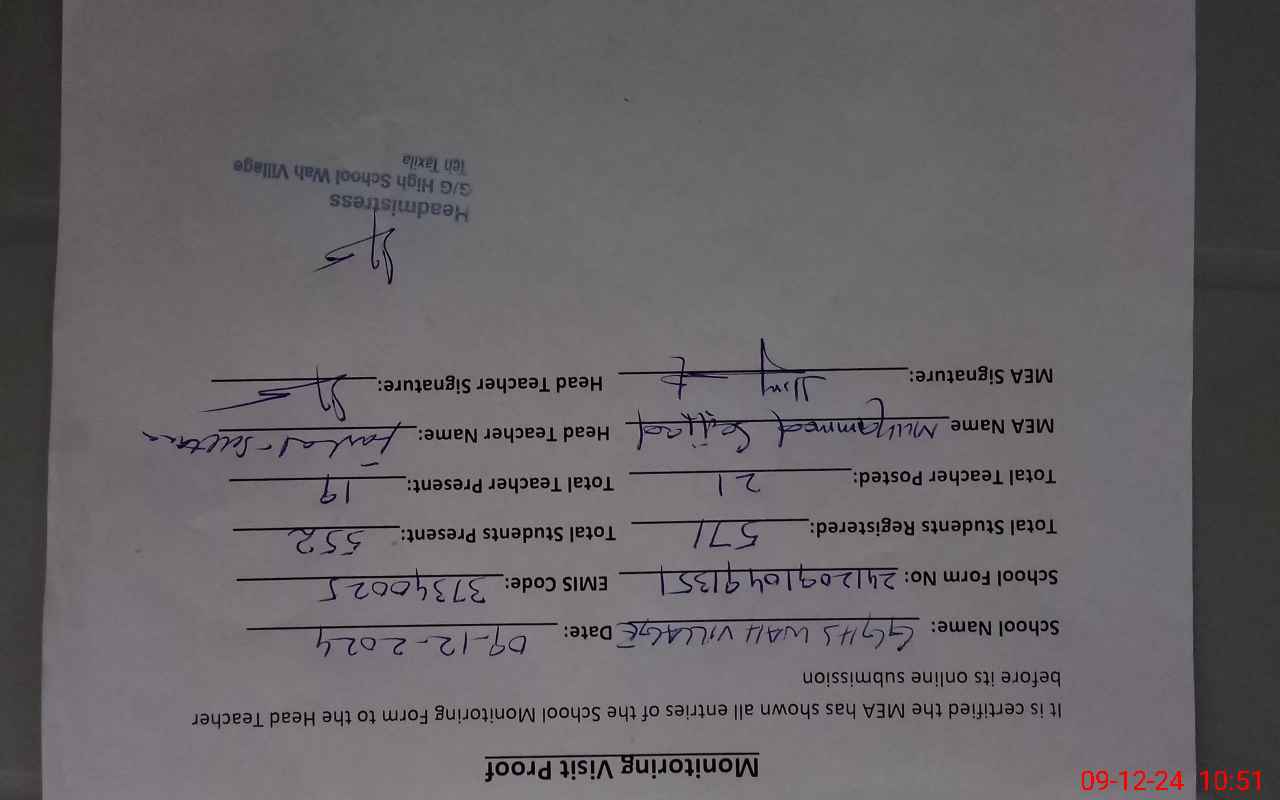 Monitoring Visit Proof
It is certified the MEA has shown all entries of the School Monitoring Form to the Head Teacher
before its online submission
School Name: GGHS WAH VILLAGE Date: 09-12-2024
School Form No: 24120910491351 EMIS Code: 37340025
Total Students Registered: 571 Total Students Present: 552
Total Teacher Posted: 21 Total Teacher Present: 19
MEA Name Muhammad Sajjad Head Teacher Name: Farhat-Sultana
MEA Signature: Head Teacher Signature:
Headmistress
G/G High School Wah Village
Teh Taxila
09-12-24 10:51